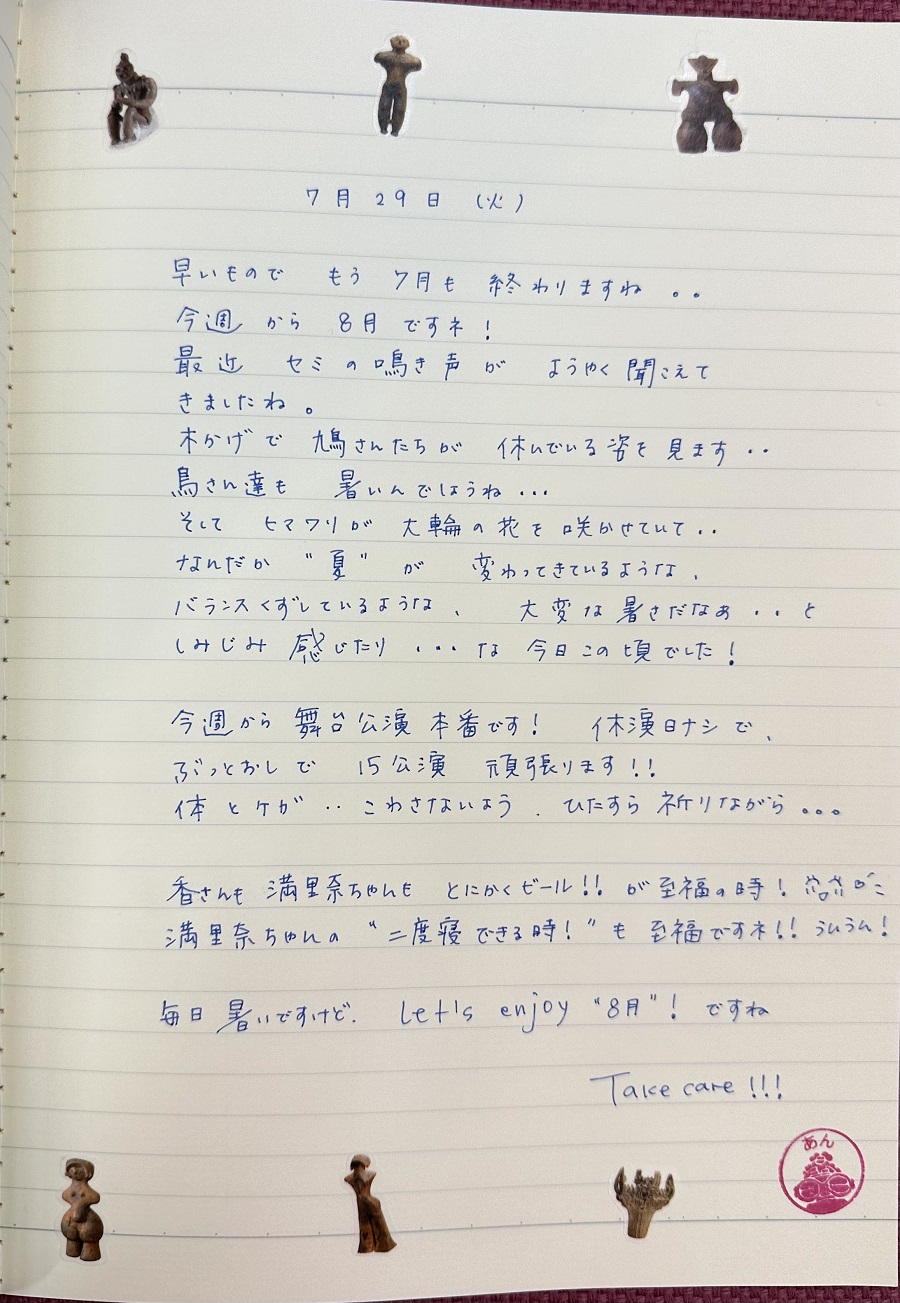 7月29日 (火)
早いもので もう 7月も 終わりますね 。。
今週 から 8月 ですネ!
最近 セミの鳴き声が ようやく聞こえて
きましたね。
木かげで 鳩さんたちが 休んでいる姿を見ます・・
鳥さん達も 暑いんでしょうね・・・
そして ヒマワリが 大輪の花を咲かせていて・・
なんだか "夏" が 変わってきているような、
バランスくずしているような、 大変な暑さだなぁ・・と
しみじみ 感じたり ・・・な 今日この頃でした!
今週から 舞台公演 本番です! 休演日ナシで、
ぶっとおしで 15公演 頑張ります!!
体 とケガ ‥ こわさないよう、ひたすら祈りながら。。。
香さんも 満里奈ちゃんも とにかくビール!! が至福の時!
満里奈ちゃんの "二度寝できる時!" も 至福ですネ!! うんうん!
毎日 暑いですけど、 Let's enjoy "8月"! ですね
Take care!!!
あん